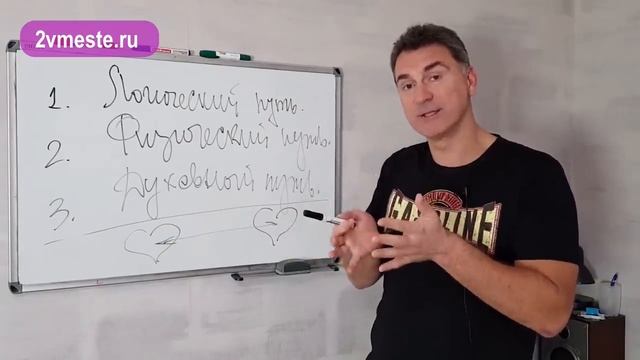 2vmeste.ru
1. Логический путь.
2. Физический путь.
3. Духовный путь.
GASOLINE